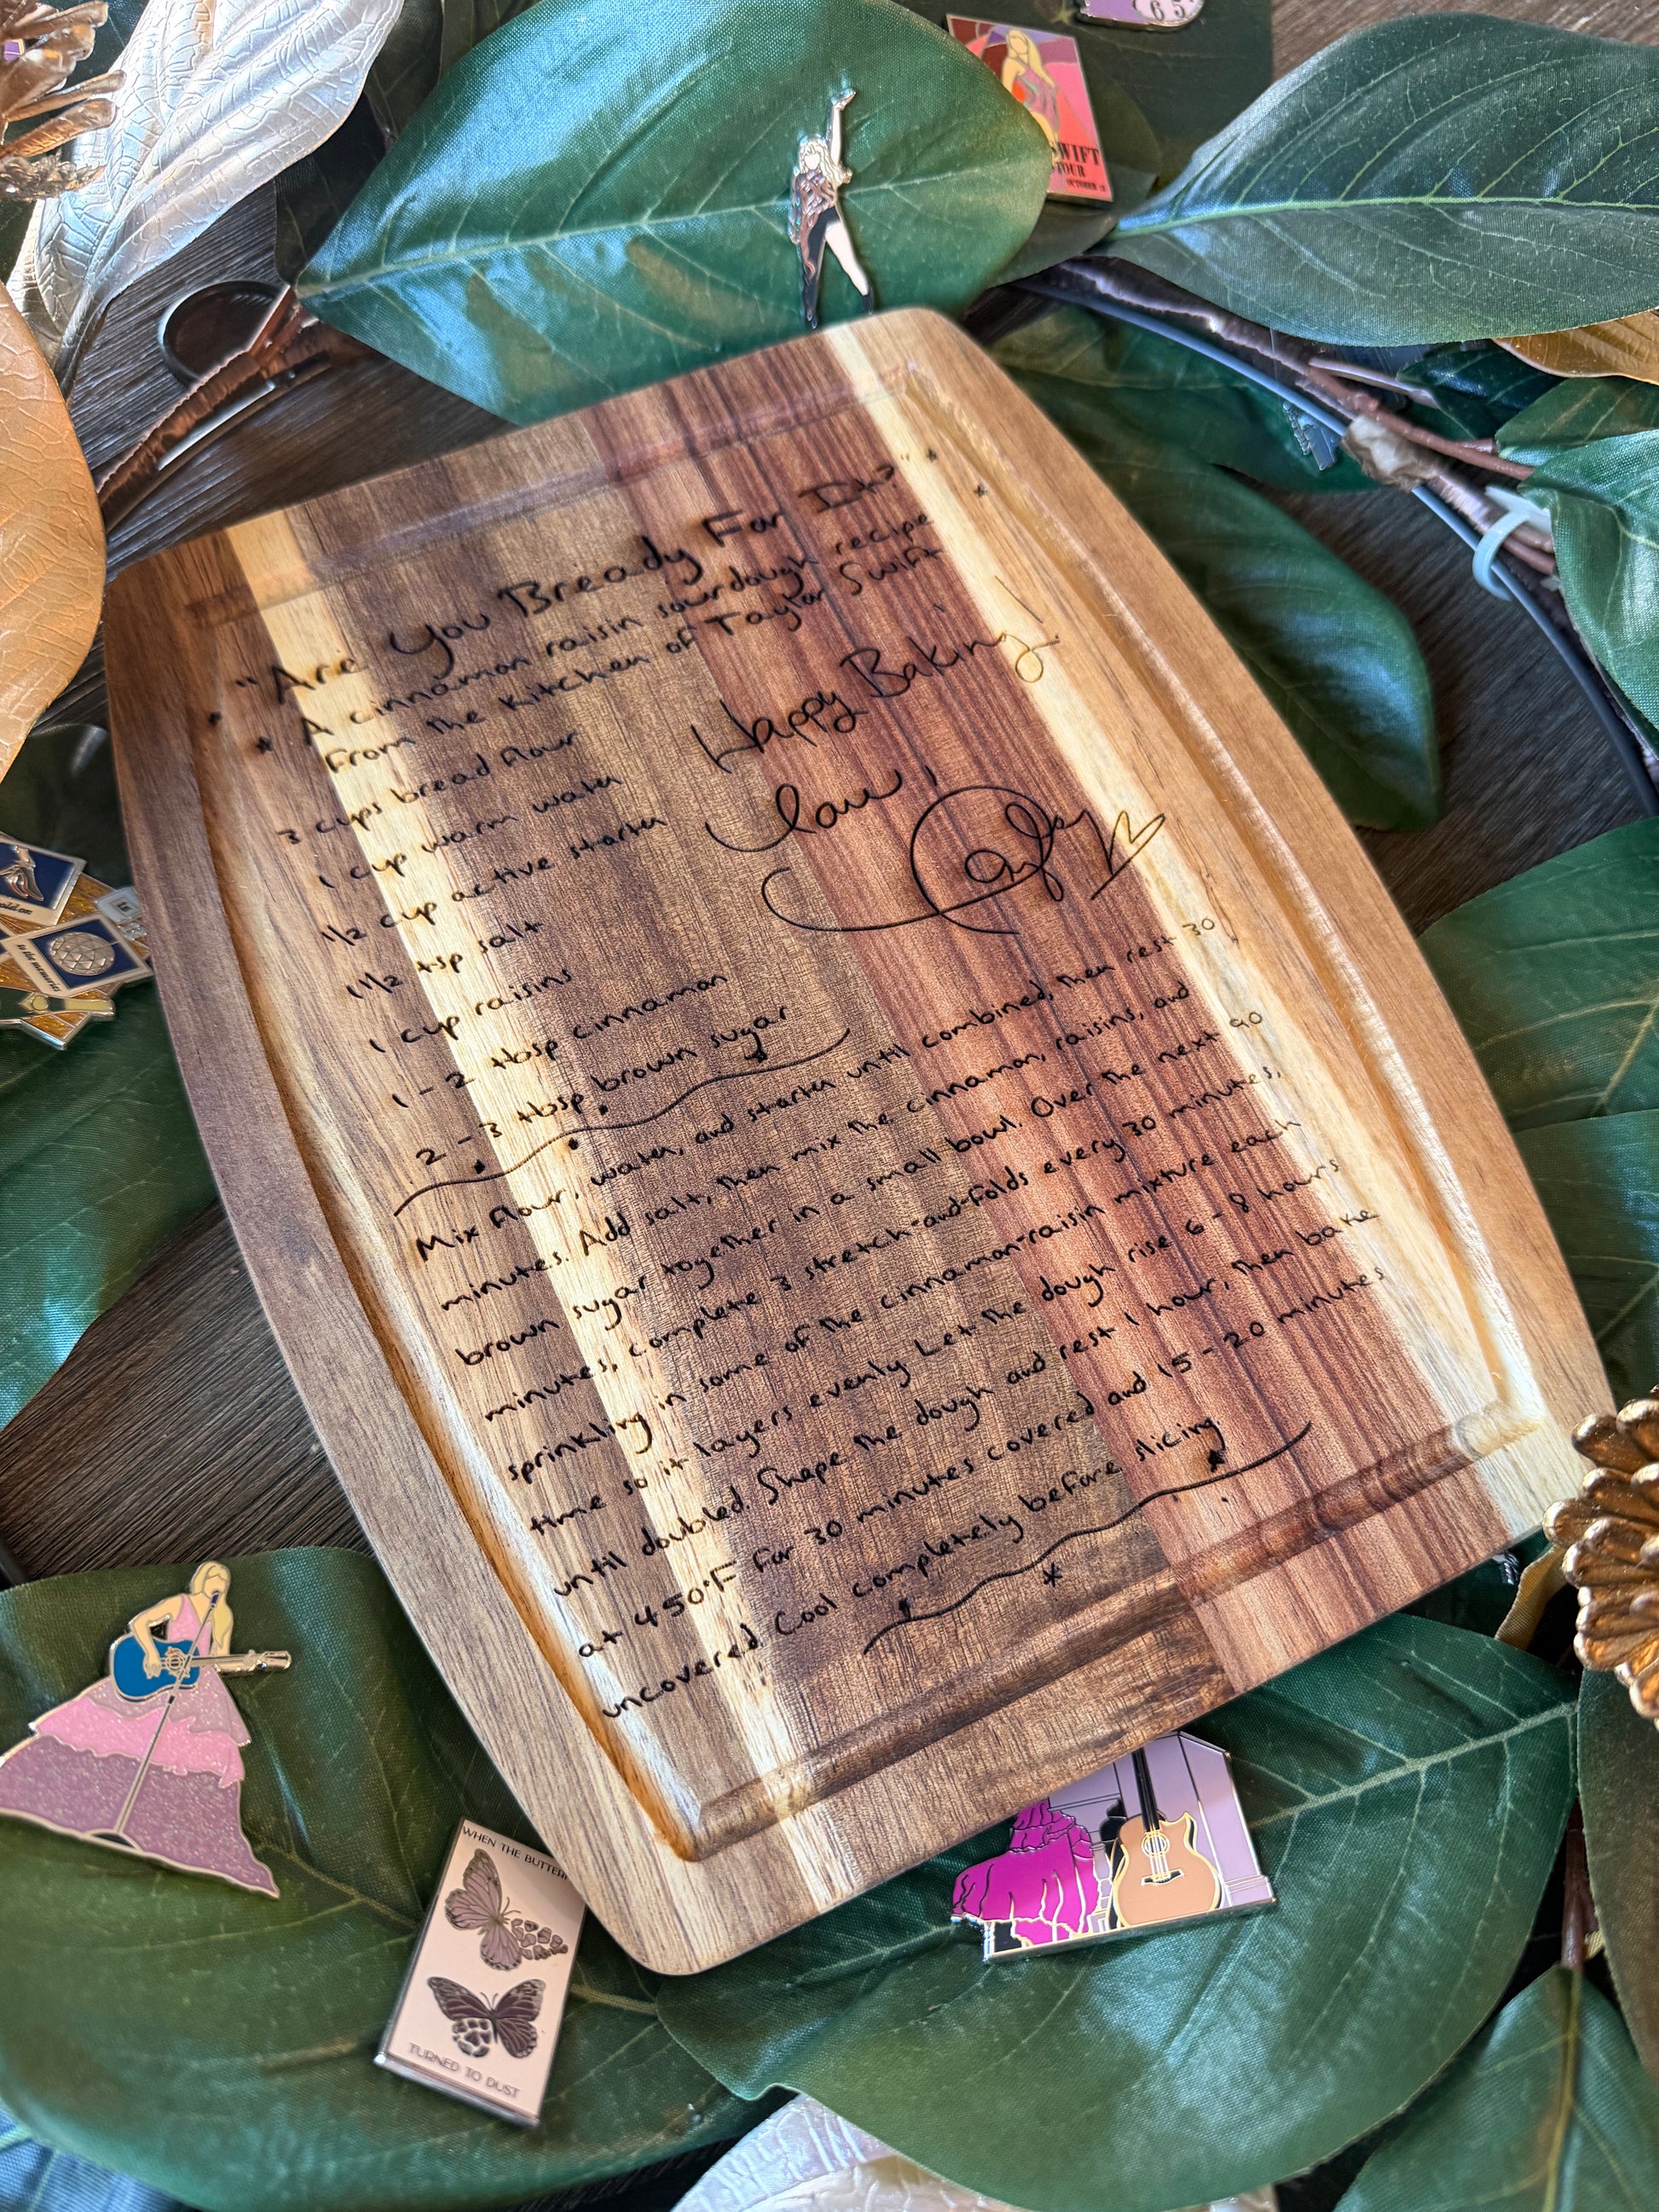 6 5
SWIFT
TOUR
OCTOBER 13
"Are You Bready For It?"
A cinnamon raisin sourdough recipe
From the kitchen of Taylor Swift
3 cups bread flour
1 cup warm water
1/2 cup active starter
1 1/2 tsp salt
1 cup raisins
1-2 tbsp cinnamon
2-3 tbsp brown sugar
Happy Baking!
Love,
Taylor
Mix flour, water, and starter until combined, then rest 30
minutes. Add salt, then mix the cinnamon, raisins, and
brown sugar together in a small bowl. Over the next 90
minutes, complete 3 stretch-and-folds every 30 minutes,
sprinkling in some of the cinnamon-raisin mixture each
time so it layers evenly. Let the dough rise 6-8 hours
until doubled. Shape the dough and rest 1 hour, then bake
at 450°F for 30 minutes covered and 15-20 minutes
uncovered. Cool completely before slicing.
the memories
WHEN THE BUTTERF
TURNED TO DUST